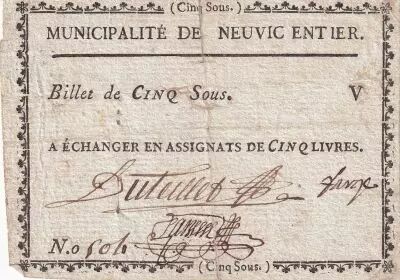 (Cinq Sous.)
MUNICIPALITÉ DE NEUVIC ENTIER.
Billet de CINQ SOUS. V
A ÉCHANGER EN ASSIGNATS DE CINQ LIVRES.
Duteillet
N.o 501
(Cinq Sous.)